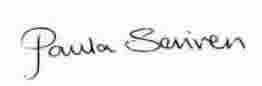 Paula Scriven